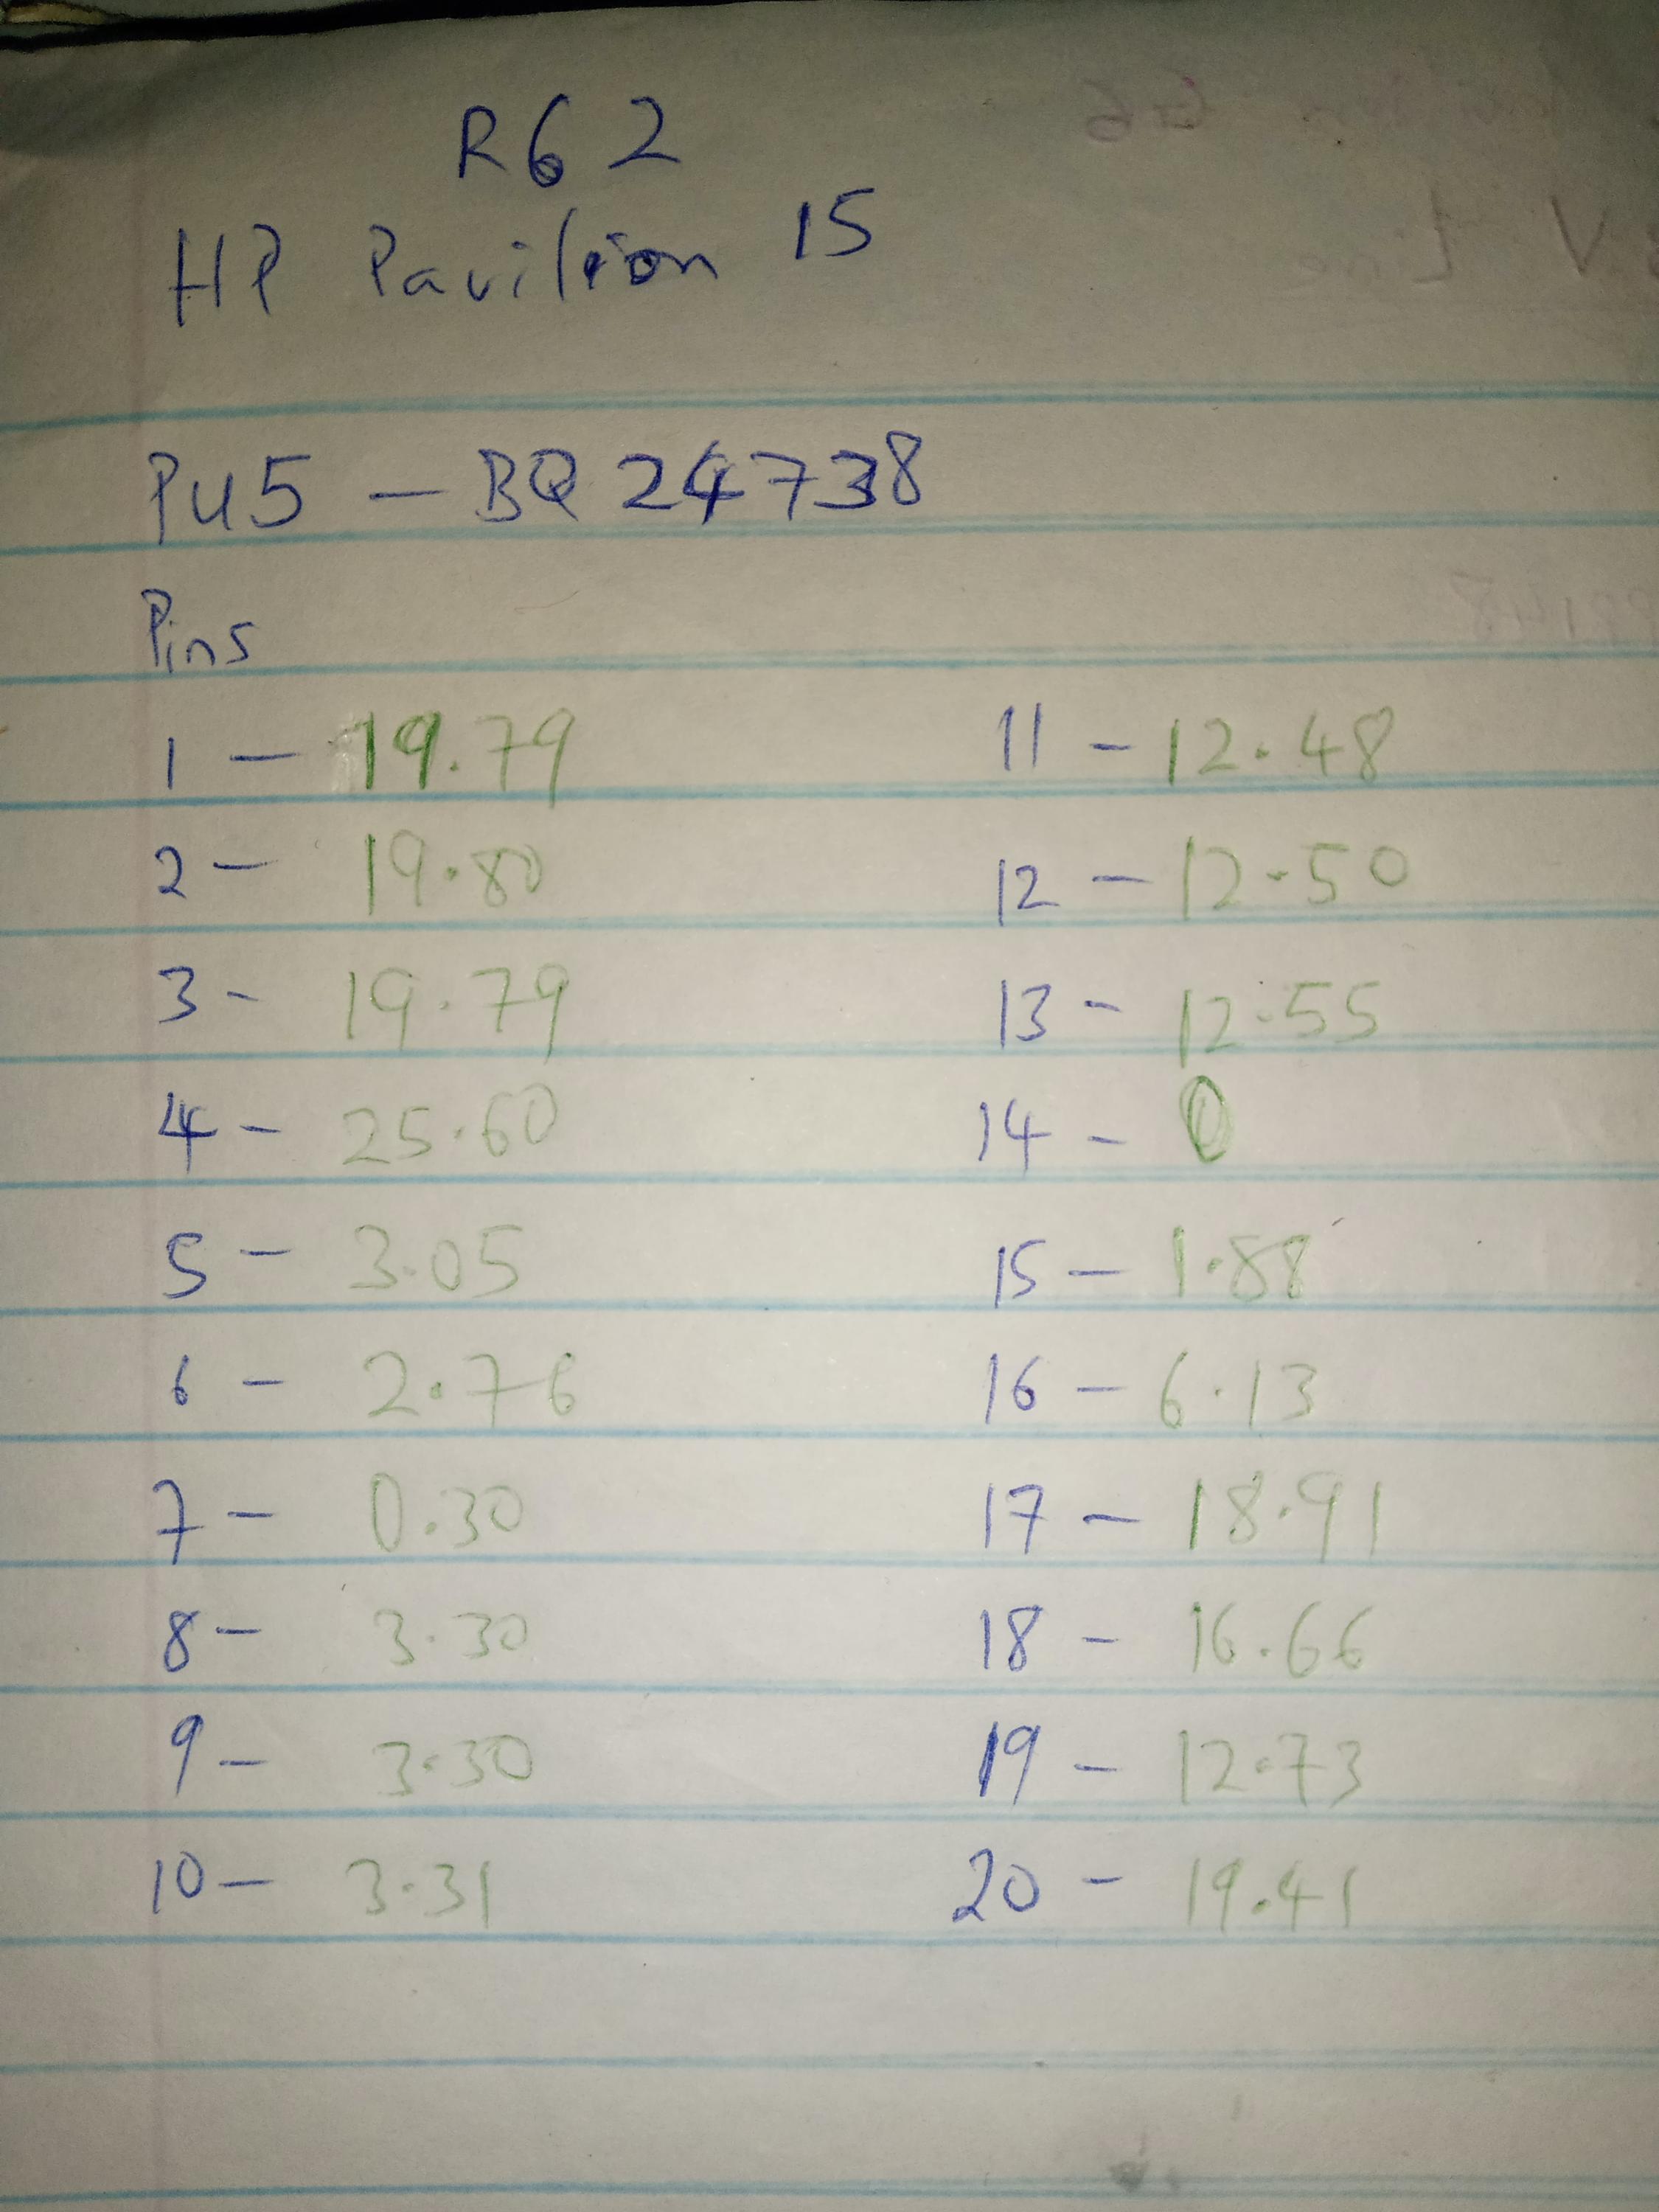 R62
HP Pavilion 15
PU5 - BQ24738
Pins
1 - 19.79
2 - 19.80
3 - 19.79
4 - 25.60
5 - 3.05
6 - 2.76
7 - 0.30
8 - 3.30
9 - 3.30
10 - 3.31
11 - 12.48
12 - 12.50
13 - 12.55
14 - 0
15 - 1.88
16 - 6.13
17 - 18.91
18 - 16.66
19 - 12.73
20 - 19.41